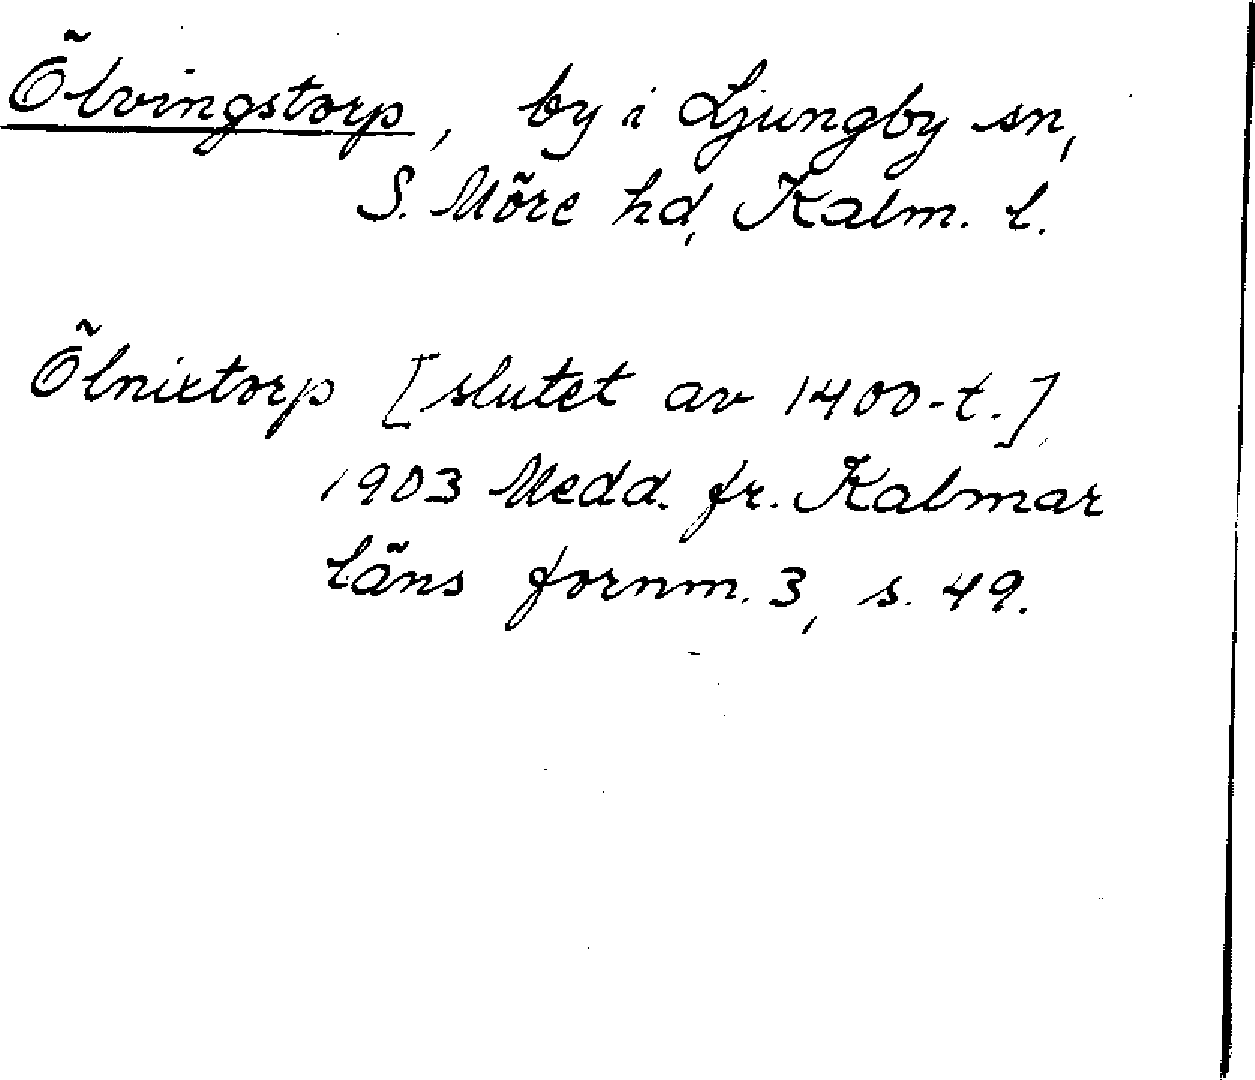 Ölvingstorp, by i Ljungby sn,
S. Möre hd, Kalm. l.
Ölnixtorp [slutet av 1400-t.],
1903 Medd. fr. Kalmar
läns fornm. 3, s. 49.